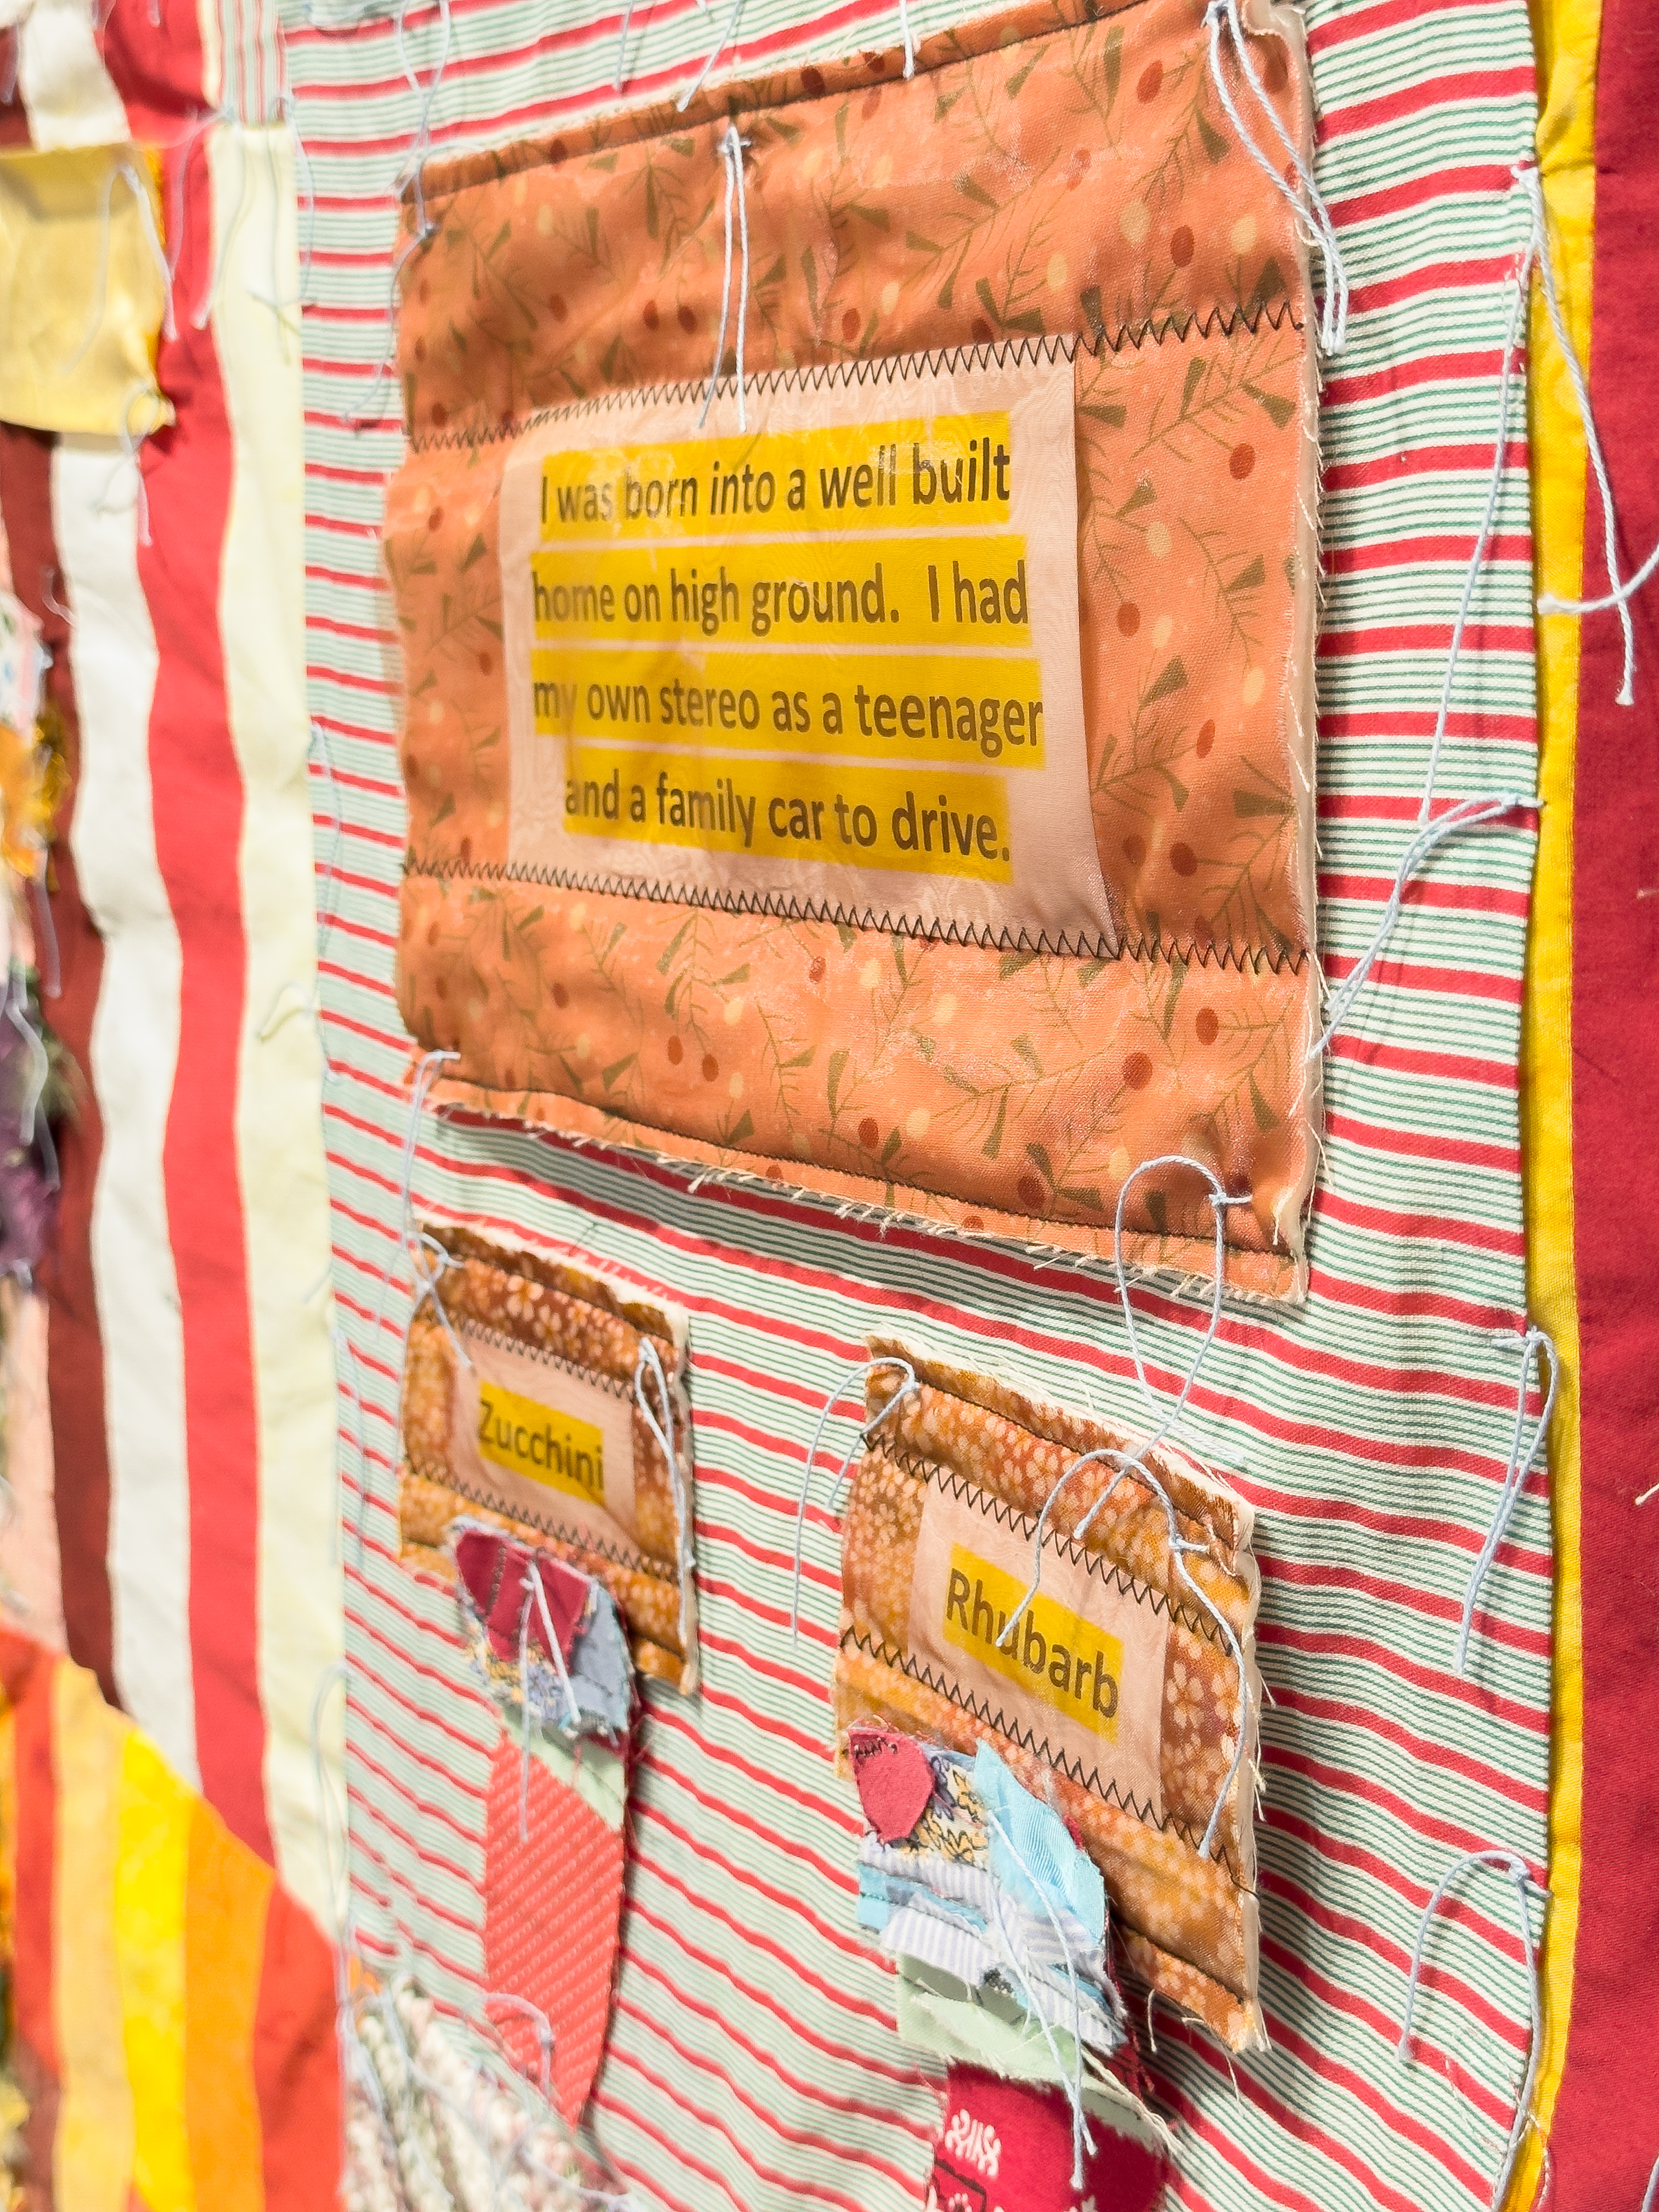 I was born into a well built
home on high ground.  I had
my own stereo as a teenager
and a family car to drive.
Zucchini
Rhubarb